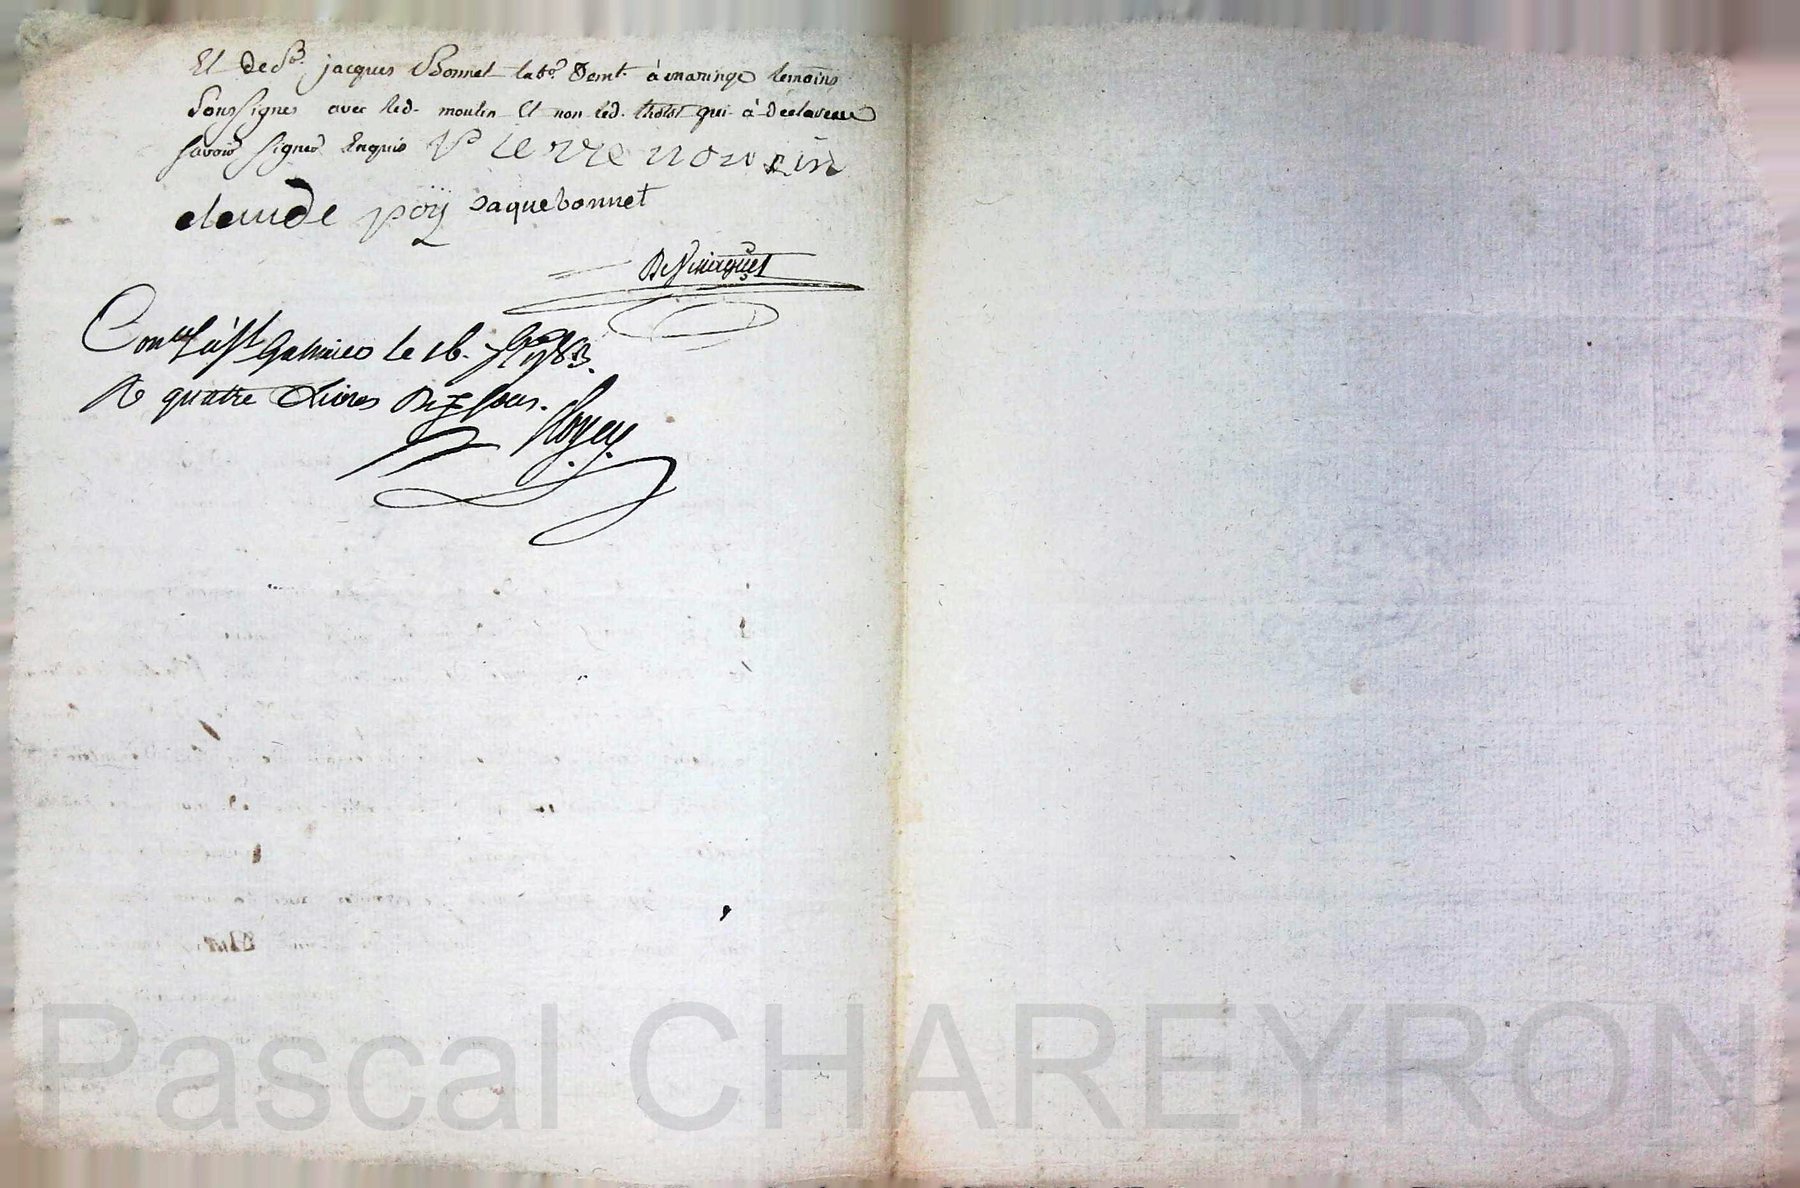 Et de Sr. jacques Bonnet labr. Demt. à maringe temoins
soussignes avec led. moulin Et non led. tholot qui à declareé
savoir signer Enquis Pierre moulin
claude poÿ Jaquebonnet
Contlé à St Galmier le 16. 7bre 1783.
R quatre Livres Dix sous.
Pascal CHAREYRON